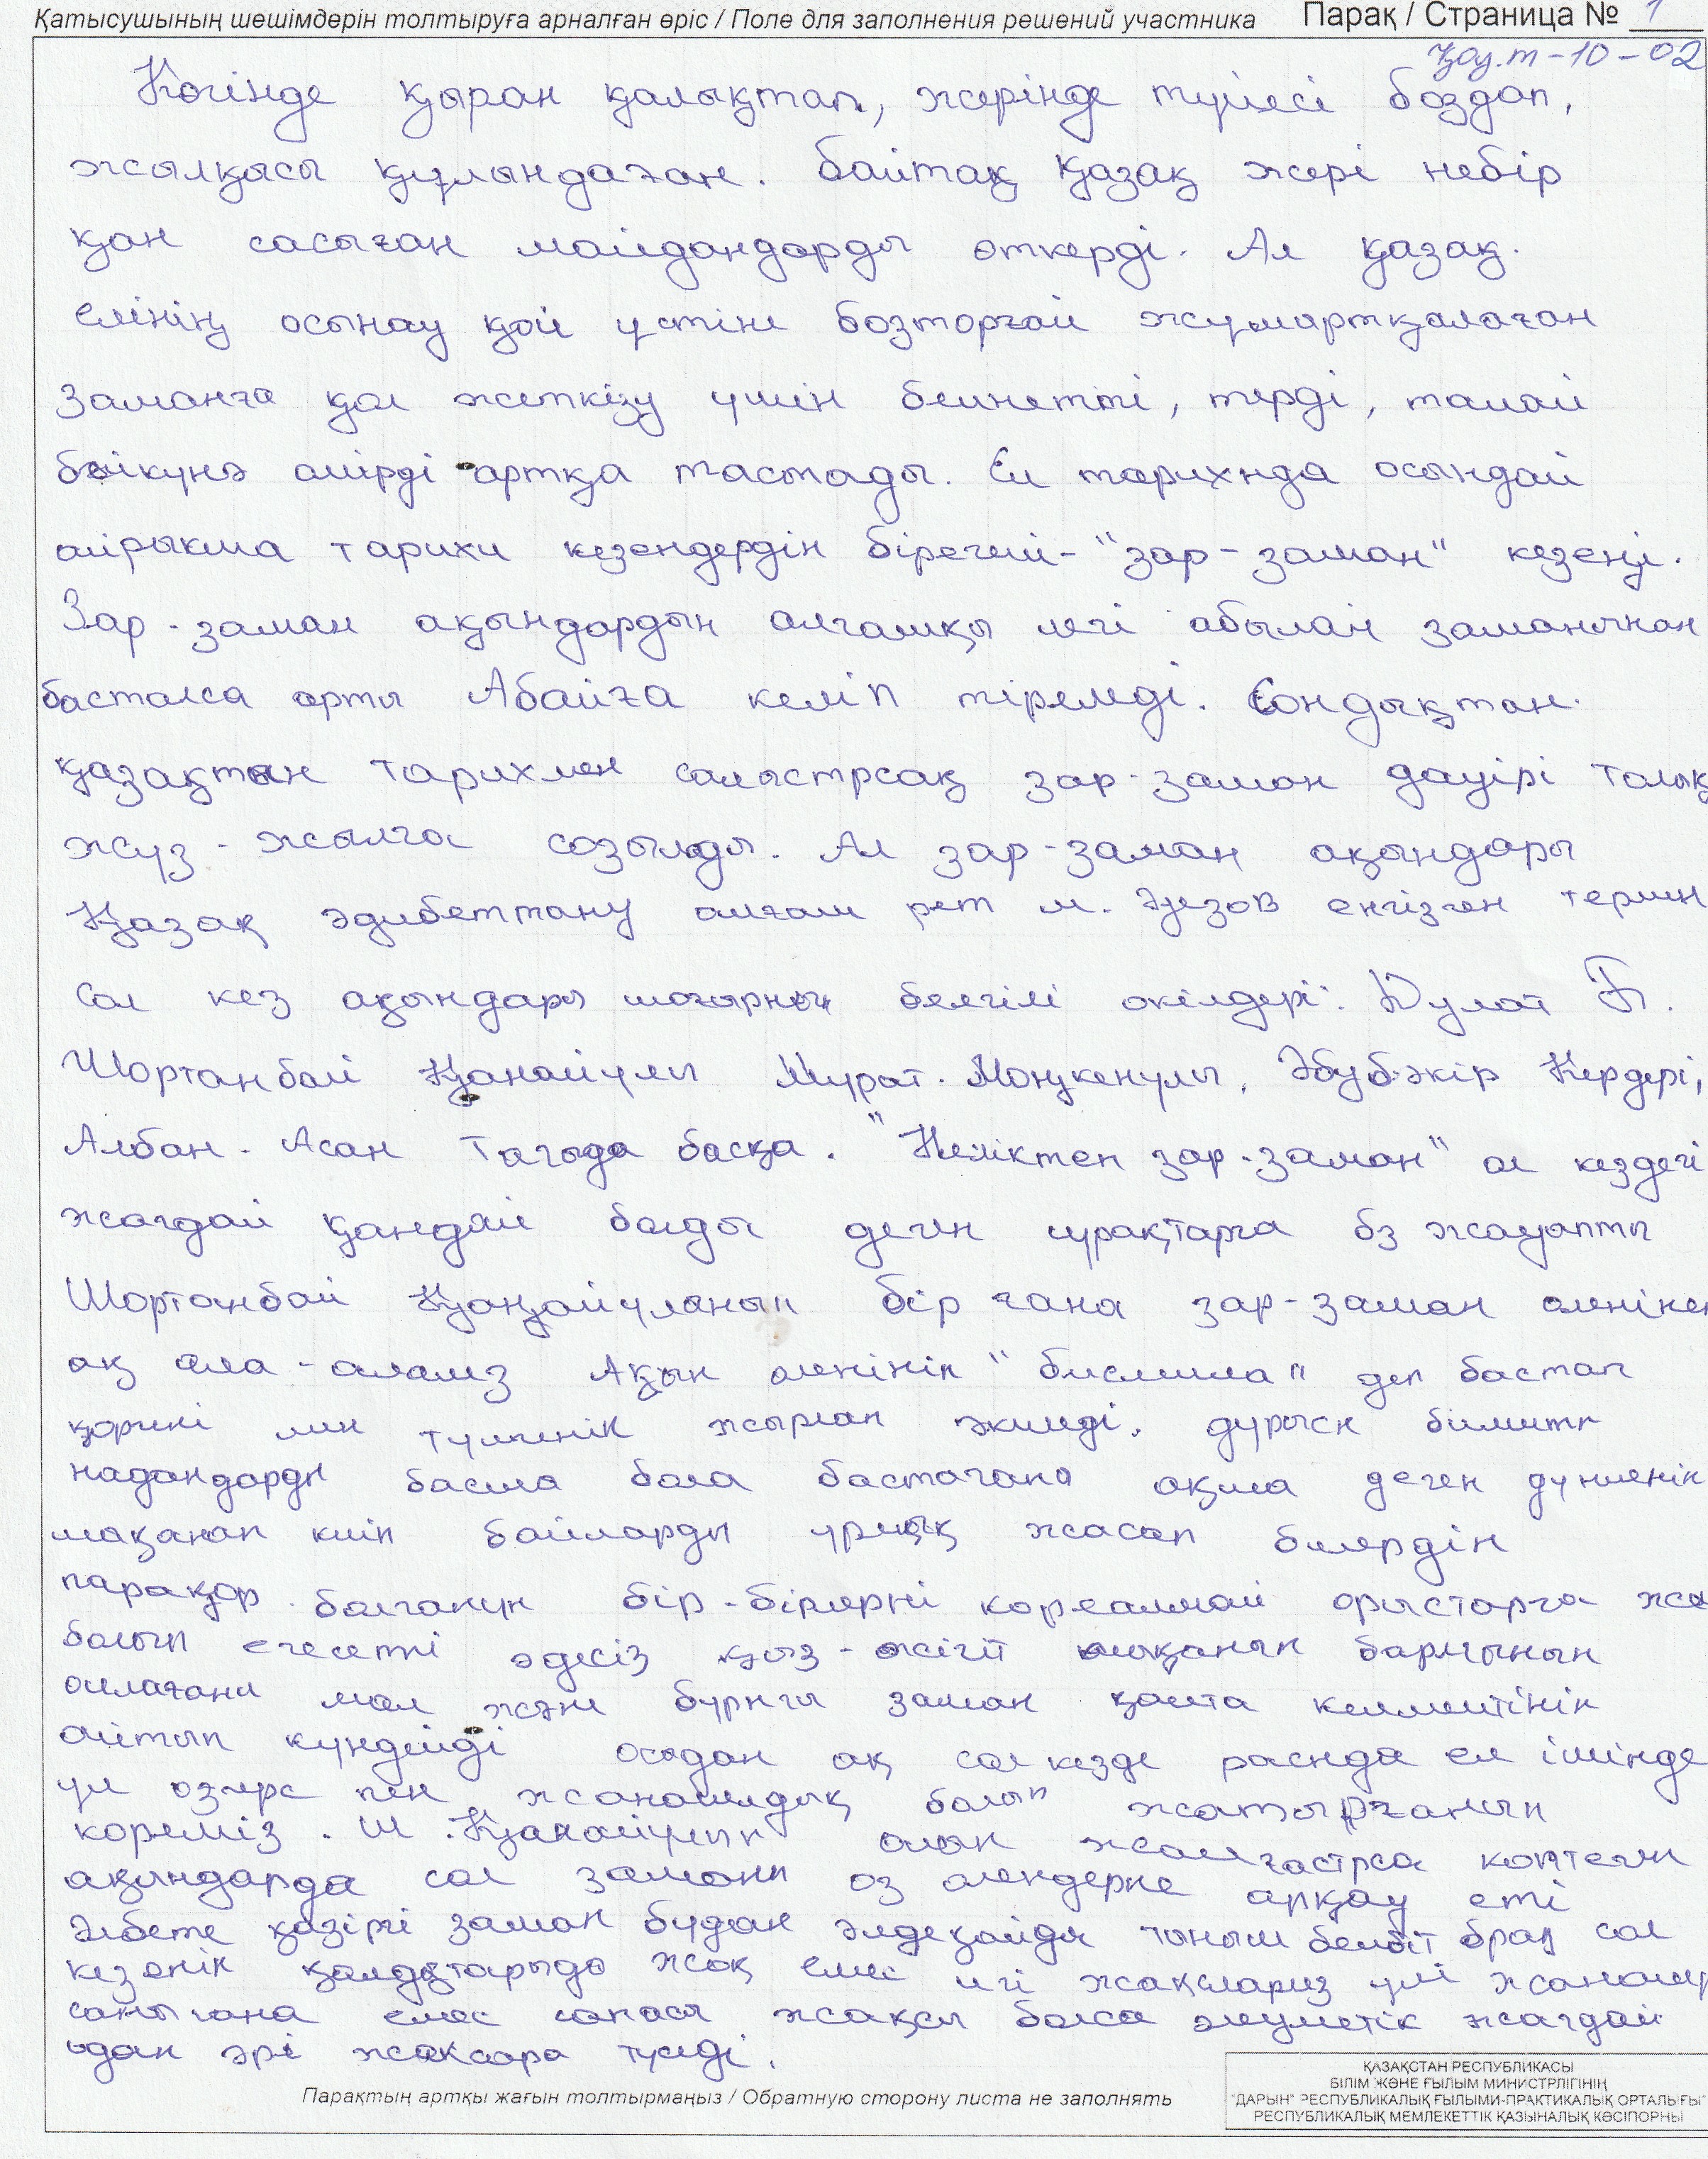 Қатысушының шешімдерін толтыруға арналған өріс / Поле для заполнения решений участника Парақ / Страница № 1
Қоу.т-10-02
Көгінде қыран қалықтап, жерінде түйесі боздап,
жылқысы құлындаған. Байтақ қазақ жері небір
қан сасыған майдандарды өткерді. Ал қазақ.
елінің осынау қой үстіне бозторғай жұмыртқалаған
заманға қол жеткізу үшін бейнетті, терді, талай
бейкүнә өмірді артқа тастады. Ел тарихнда осындай
айрықша тарихи кезендердін бірегейі-"зар-заман" кезеңі.
Зар-заман ақындардын алғашқы легі абылай заманынан
басталса арты Абайға келіп тіреледі. Сондықтан.
қазақтын тарихмен салыстрсақ зар-заман дауірі толық
жүз-жылға созылды. Ал зар-заман ақындары
Қазақ әдибеттану алғаш рет м. Әуезов енгізген термин
Сол кез ақындары шоғырнын белгілі окілдері: Дулат Б.
Шортанбай Қанайұлы Мурат. Моңкенулы, Әбубәкір Кердері,
Албан-Асан Тағыда басқа. "Неліктен зар-заман" ол кездегі
жағдай қандай болды деген сұрақтарға біз жауапты
Шортанбай Қанайұлының бір ғана зар-заман оленінен
ақ ала-аламз Ақын оленінін "бисмилла" деп бастап
қорқені мен түйгенін жырлап әкиледі. дұрысн білмитн
надандарды басшы бола бастағана ақша деген дүниенін
шақанап киіп байларды ұрлық жасап билердін
парақор болғанын бір-бірлерні көреалмай орыстарға жем
болып егесетні әдепсіз қыз-жігіт шыққанын барлығынын
ойлағаны мал және бұрнғы заман қайта келмейтінін
айтып күңірейді осыдан ақ сол кезде раснда ел ішінде
ұл озгеріс пен жаңашылдық болып жатырғанын
кореміз. Ш. Қанайұлын олын жалғастрса коптеген
ақындарда сол заманн оз олендерне арқау еті
Әлбете қазіргі заман бұдан әлдеқайда тыныш бейбіт брақ сол
кезенін қалдықтарыда жоқ емес игі жақсларыз ұлі жаңашыл
саны ғана емес сапасы жақсы болса әлеуметік жағдай
одан әрі жақсара түседі.
Парақтың артқы жағын толтырмаңыз / Обратную сторону листа не заполнять
ҚАЗАҚСТАН РЕСПУБЛИКАСЫ
БІЛІМ ЖӘНЕ ҒЫЛЫМ МИНИСТРЛІГІНІҢ
"ДАРЫН" РЕСПУБЛИКАЛЫҚ ҒЫЛЫМИ-ПРАКТИКАЛЫҚ ОРТАЛЫҒЫ"
РЕСПУБЛИКАЛЫҚ МЕМЛЕКЕТТІК ҚАЗЫНАЛЫҚ КӘСІПОРНЫ